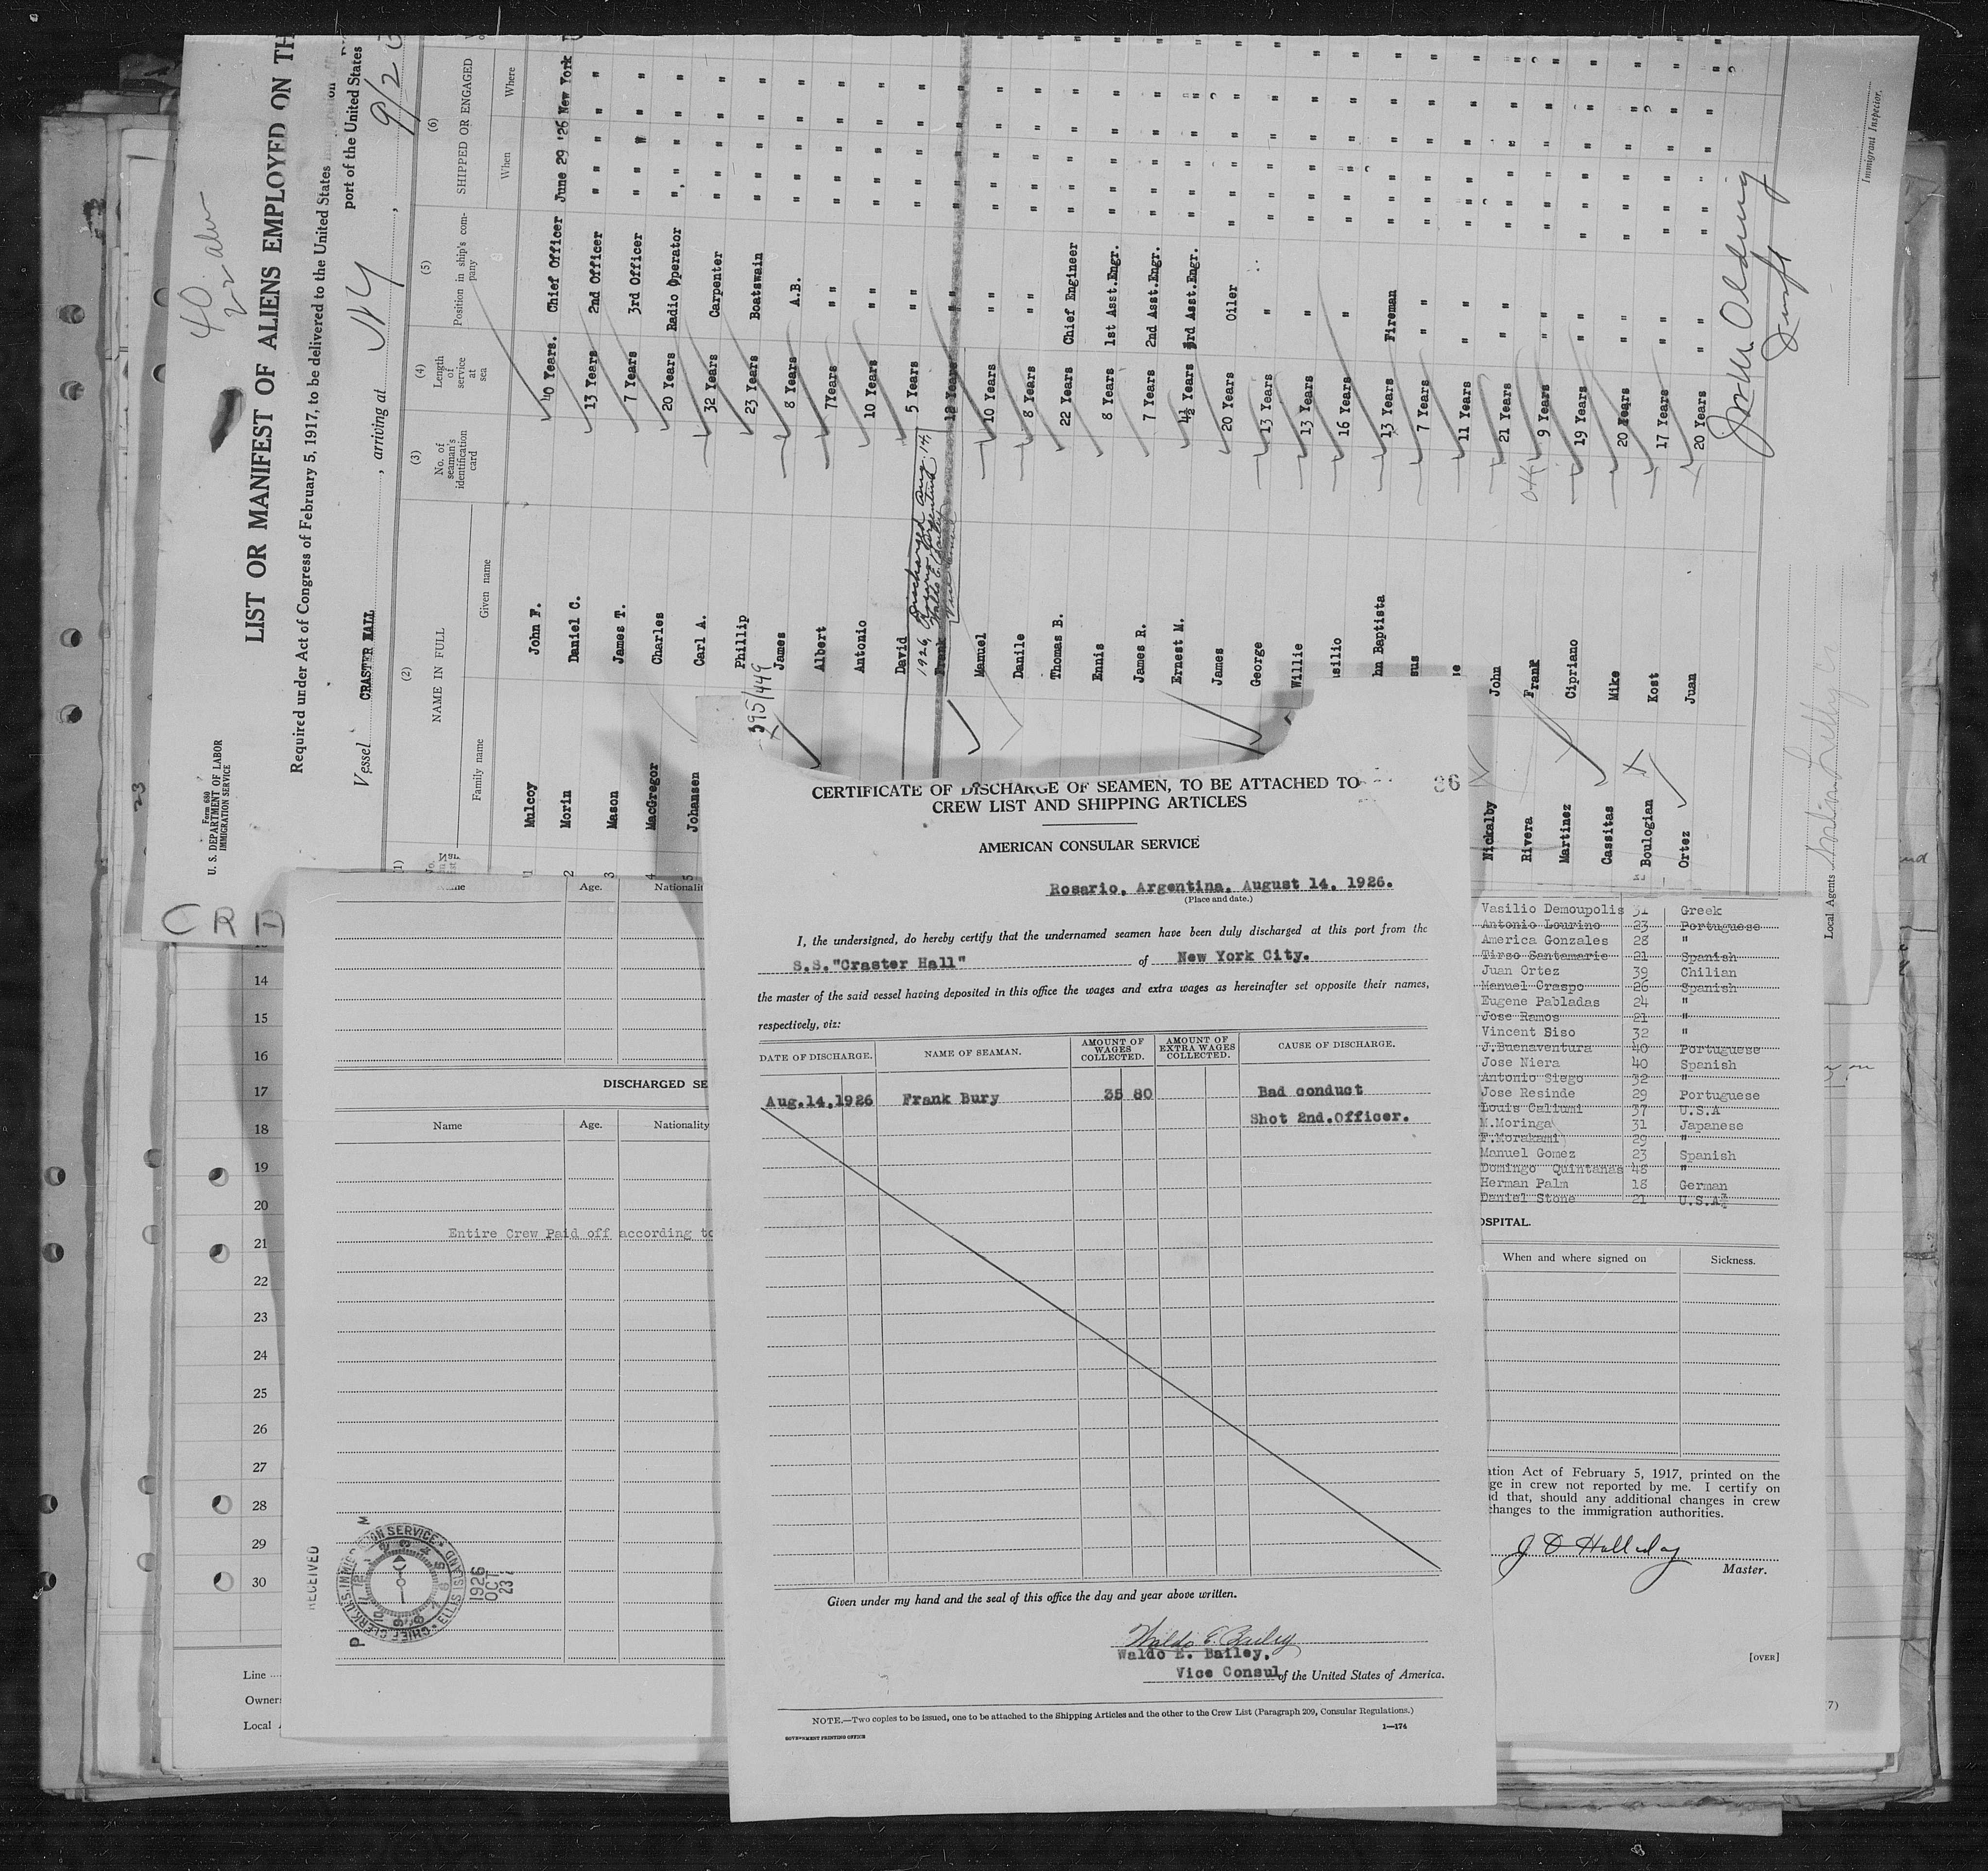 40
LIST OR MANIFEST OF ALIENS EMPLOYED ON TH
Required under Act of Congress of February 5, 1917, to be delivered to the United States
port of the United States
Vessel CRASTER HALL, arriving at N Y, 9/2
Form 680
U. S. DEPARTMENT OF LABOR
IMMIGRATION SERVICE
(1)
(2)
(3)
(4)
(5)
(6)
NAME IN FULL
Family name
Given name
No. of seaman's identification card
Length of service at sea
Position in ship's company
SHIPPED OR ENGAGED
When
Where
1 Mulcoy John F. 40 Years. Chief Officer June 29 '26 New York
2 Morin Daniel C. 13 Years 2nd Officer " " " "
3 Mason James T. 7 Years 3rd Officer " " " "
4 MacGregor Charles 20 Years Radio Operator " " " "
5 Johansen Carl A. 32 Years Carpenter " " " "
Phillip 23 Years Boatswain " " " "
James 8 Years A.B. " " " "
Albert 7Years " " " " " "
Antonio 10 Years " " " " " "
David 5 Years " " " " " "
Discharged Aug. 14,
1926, Rosario, Argentina
Waldo E. Bailey
Vice Consul
Frank 12 Years " " " " " "
Manuel 10 Years " " " " " "
Danile 8 Years " " " " " "
Thomas B. 22 Years Chief Engineer " " " "
Ennis 8 Years 1st Asst.Engr. " " " "
James R. 7 Years 2nd Asst.Engr. " " " "
Ernest M. 4½ Years 3rd Asst.Engr. " " " "
James 20 Years Oiler " " " "
George 13 Years " " " " "
Willie 13 Years " " " " "
silio 16 Years " " " " "
hn Baptista 13 Years Fireman " " " "
sus 7 Years " " " " " "
se 11 Years " " " " " "
Nickalby John 21 Years " " " " " "
Rivera Frank 9 Years " " " " " "
Martinez Cipriano 19 Years " " " " " "
Cassitas Mike 20 Years " " " " " "
Boulogian Kost 17 Years " " " " " "
Ortez Juan 20 Years " " " " " "
395/449
Immigrant Inspector.
Local Agents
23
CRA
14
15
16
17
18
19
20
21
22
23
24
25
26
27
28
29
30
Line
Owners
Local
Age.
Nationali
DISCHARGED SE
Name
Age.
Nationality
Entire Crew Paid off according to
RECEIVED
CHIEF CLERK U.S. IMMIGRATION SERVICE ELLIS ISLAND
1926
OCT
23
P
M
CERTIFICATE OF DISCHARGE OF SEAMEN, TO BE ATTACHED TO
CREW LIST AND SHIPPING ARTICLES
AMERICAN CONSULAR SERVICE
Rosario, Argentina, August 14, 1926.
(Place and date.)
I, the undersigned, do hereby certify that the undernamed seamen have been duly discharged at this port from the
S.S."Craster Hall" of New York City.
the master of the said vessel having deposited in this office the wages and extra wages as hereinafter set opposite their names,
respectively, viz:
DATE OF DISCHARGE.
NAME OF SEAMAN.
AMOUNT OF WAGES COLLECTED.
AMOUNT OF EXTRA WAGES COLLECTED.
CAUSE OF DISCHARGE.
Aug.14,1926 Frank Bury 35 80 Bad conduct
Shot 2nd.Officer.
Given under my hand and the seal of this office the day and year above written.
Waldo E. Bailey
Waldo E. Bailey,
Vice Consul of the United States of America.
NOTE.—Two copies to be issued, one to be attached to the Shipping Articles and the other to the Crew List (Paragraph 209, Consular Regulations.)
GOVERNMENT PRINTING OFFICE
1—174
Vasilio Demoupolis 31 Greek
Antonio Lourino 23 Portuguese
America Gonzales 28 "
Tirso Santamarie 21 Spanish
Juan Ortez 39 Chilian
Manuel Craspo 26 Spanish
Eugene Pabladas 24 "
Jose Ramos 21 "
Vincent Siso 32 "
J.Buenaventura 40 Portuguese
Jose Niera 40 Spanish
Antonio Siego 32 "
Jose Resinde 29 Portuguese
Louis Caliumi 37 U.S.A
M.Moringa 31 Japanese
F.Morakami 29 "
Manuel Gomez 23 Spanish
Domingo Quintanas 48 "
Herman Palm 18 German
Daniel Stone 21 U.S.A
OSPITAL.
When and where signed on
Sickness.
ation Act of February 5, 1917, printed on the
ge in crew not reported by me. I certify on
d that, should any additional changes in crew
changes to the immigration authorities.
Master.
[OVER]
7)